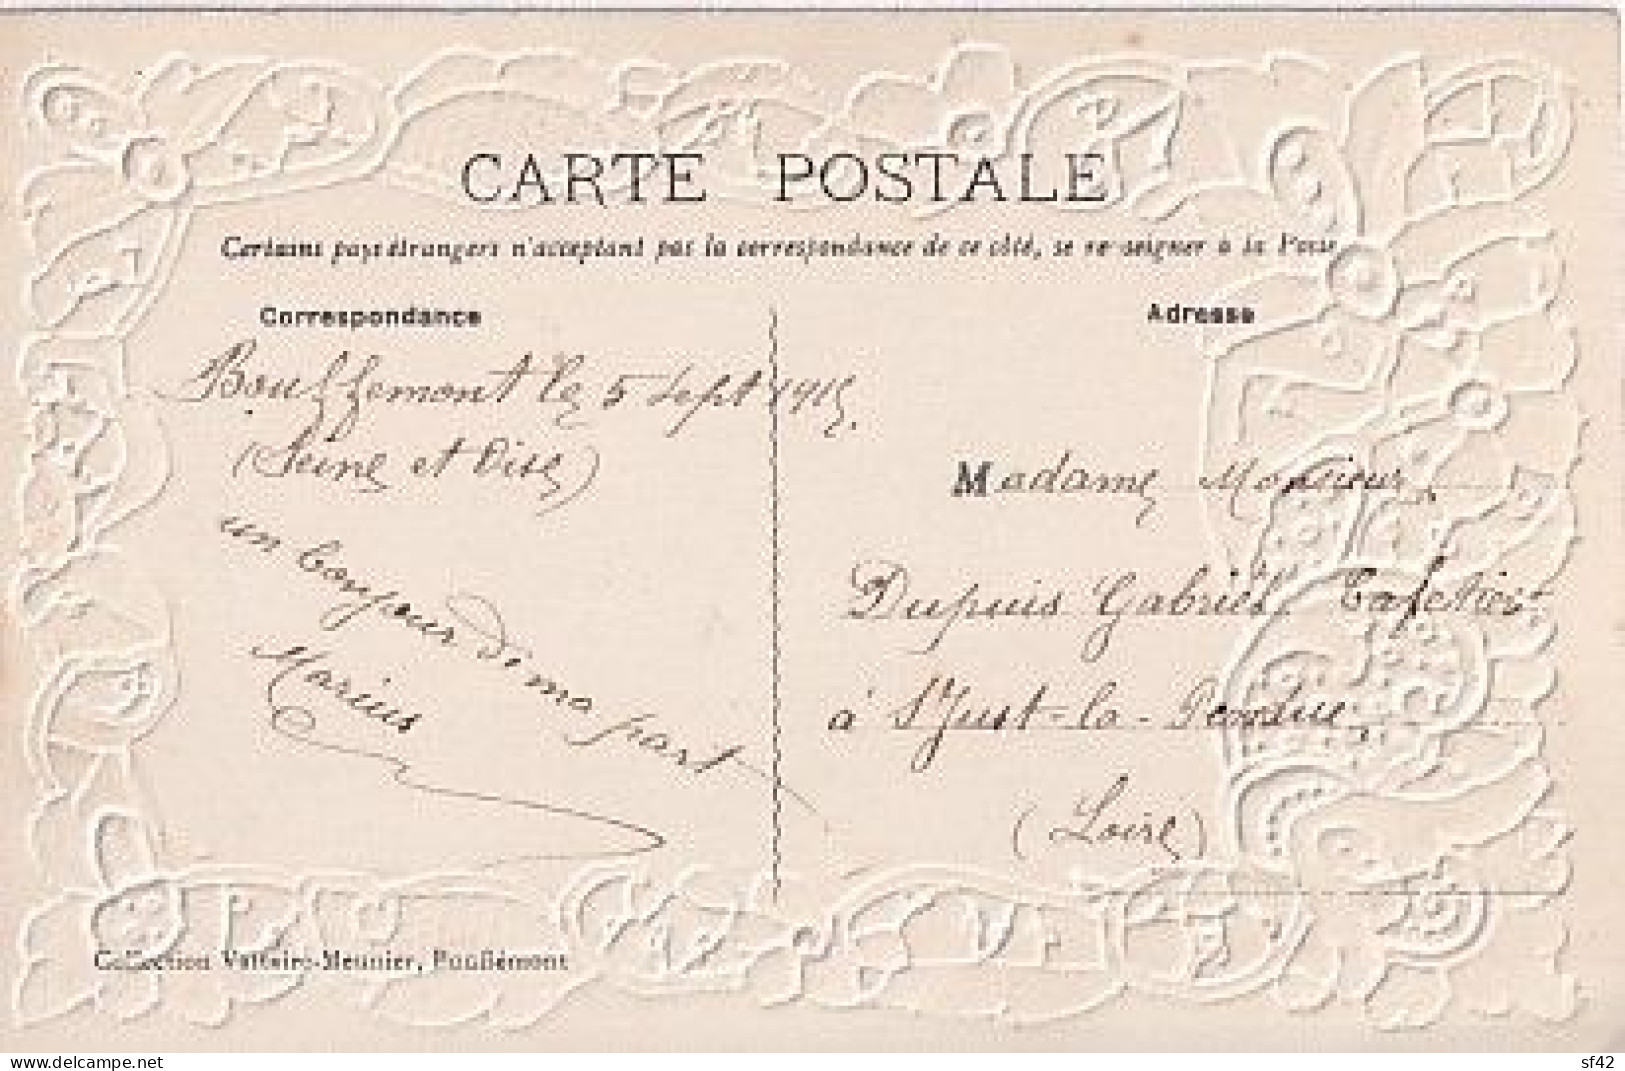 CARTE POSTALE
Certains pays étrangers n'acceptant pas la correspondance de ce côté, se renseigner à la Poste
Correspondance
Adresse
Bouffemont le 5 Sept 1915.
(Seine et Oise)
un bonjour de ma part
Marius
Madame Monsieur
Dupuis Gabriel, Cafetier
à St Just-la-Pendue
(Loire)
Collection Vattaire-Meunier, Bouffémont
www.delcampe.net
sf42